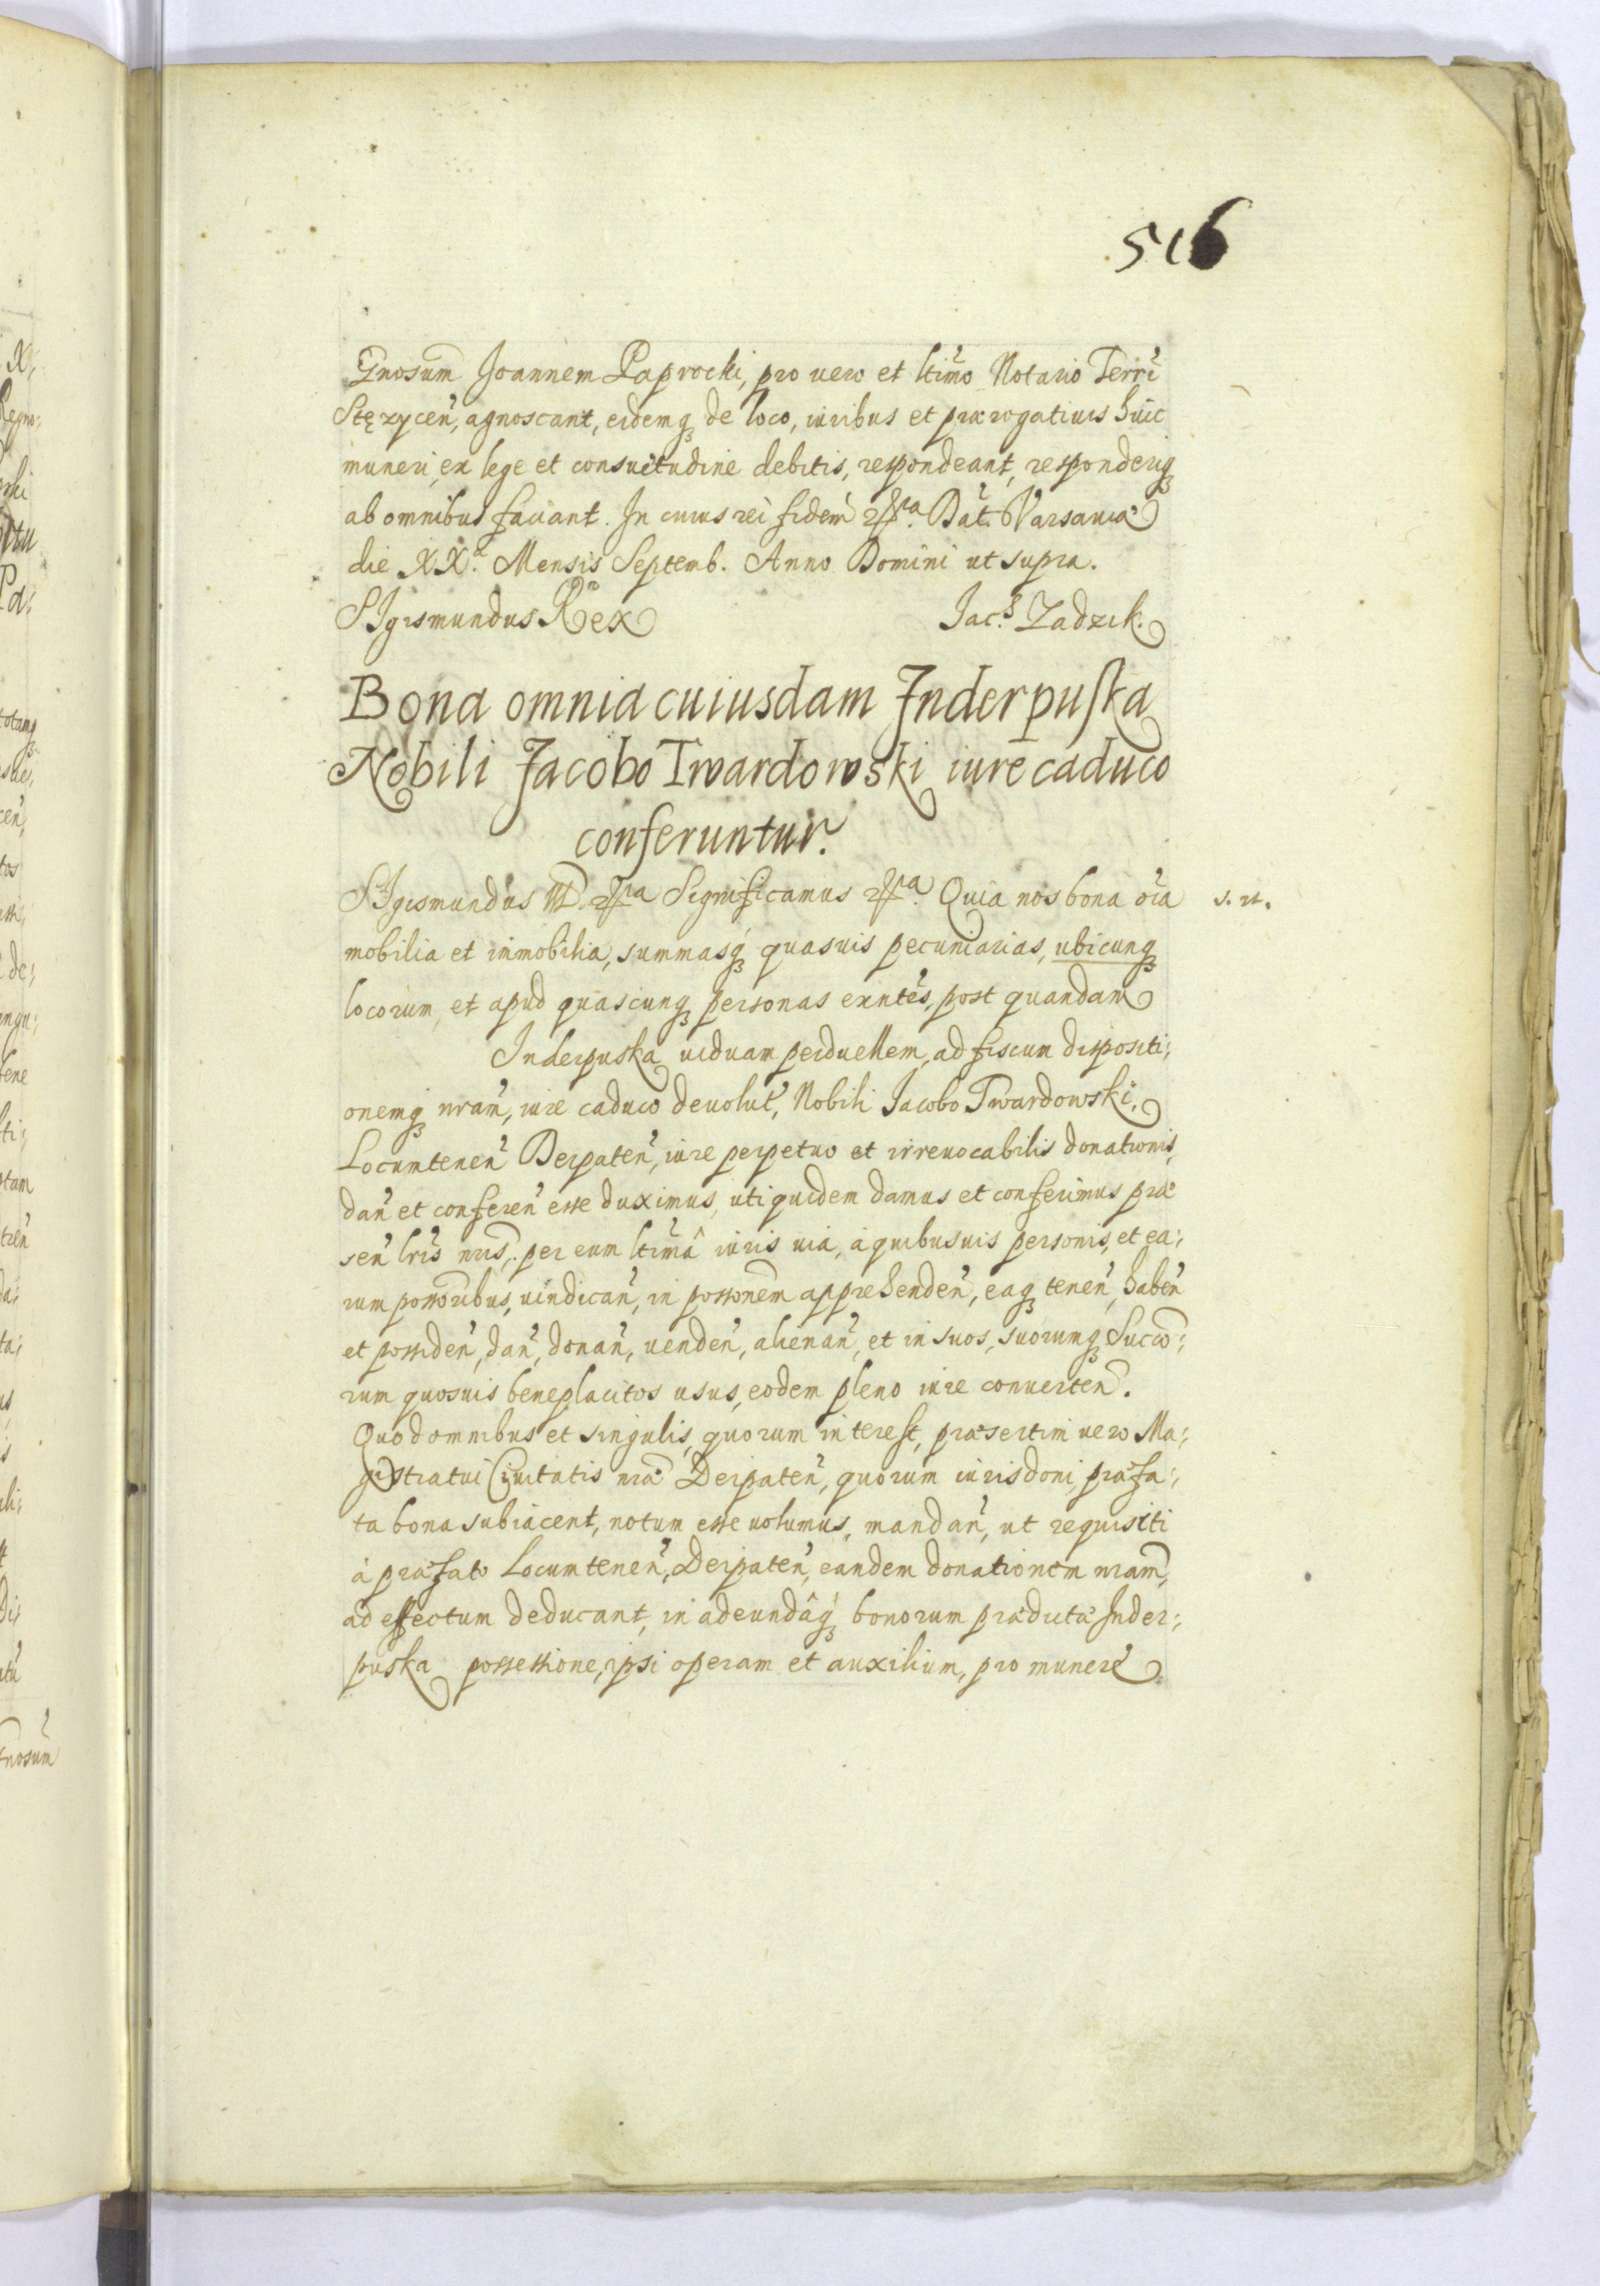 516
Gnosum Joannem Paprocki, pro uero et ltimo Notario Terri
Stęzycen, agnoscant, eidemq de loco, iuribus et prærogatiuis huic
muneri, ex lege et consuetudine debitis, respondeant, responderiq
ab omnibus faciant. In cuius rei fidem Dat. Varsauiæ
die XX. Mensis Septemb. Anno Domini ut supra.
SIgismundus Rex Jac. Zadzik.
Bona omnia cuiusdam Inderpuska
Nobili Jacobo Twardowski iure caduco
conferuntur.
SIgismundus III. Significamus Quia nos bona oia
mobilia et inmobilia, summasq quasuis pecuniarias, ubicunq
locorum, et apud quascunq personas exntes, post quandam
Inderpuska uiduam perduellem, ad fiscum dispositi;
onemq nram, iure caduco deuolut, Nobili Jacobo Twardowski,
Locumtenen Derpaten, iure perpetuo et irreuocabilis donationis,
dan et conferen esse duximus, uti quidem damus et conferimus præ
sen lris nris, per eum ltimâ iuris uia, à quibusuis personis, et ea;
rum possoribus, uindican, in possonem apprehenden, eaq tenen, haben
et possiden, dan, donan, uenden, alienan, et in suos, suorumq Succo;
rum quosuis beneplacitos usus, eodem pleno iure conuerten.
Quod omnibus et singulis, quorum interest, præsertim uero Ma;
gistratui Ciuitatis nræ Derpaten, quorum iurisdoni, præfa;
ta bona subiacent, notum esse uolumus, mandan, ut requisiti
à præfato Locumtenen, Derpaten, eandem donationem nram,
ad effectum deducant, in adeundâq bonorum prædictæ Inder;
puska possessione, ipsi operam et auxilium, pro munere